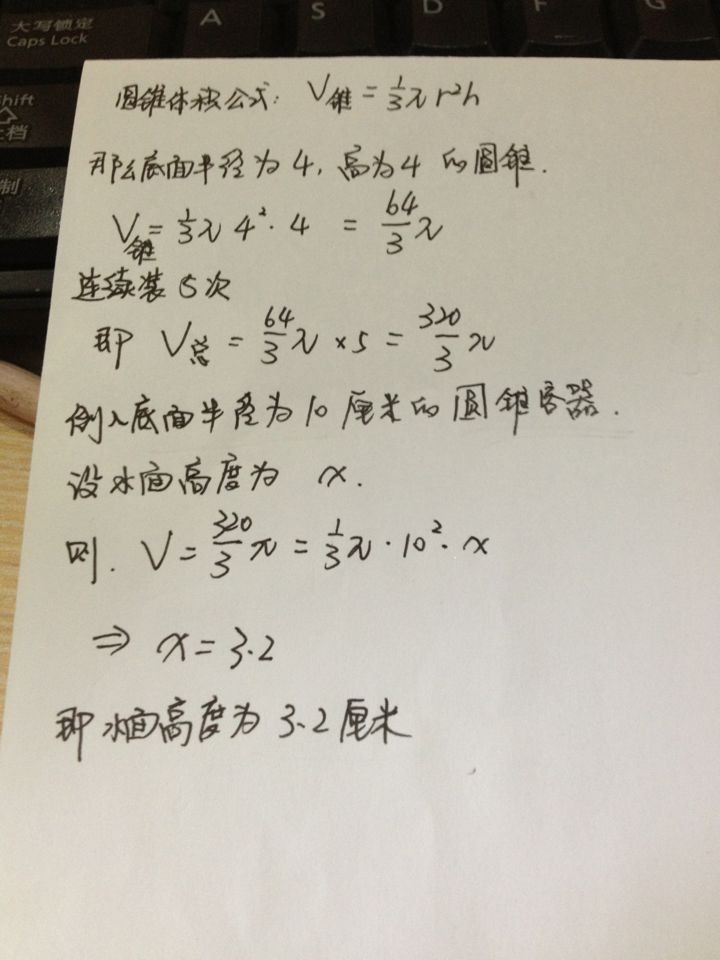 A S D F G
大写锁定
Caps Lock
Shift
档
制
圆锥体积公式: V锥 = 1/3 π r²h
那么底面半径为 4, 高为 4 的圆锥.
V锥 = 1/3 π 4² · 4 = 64/3 π
连续装 5 次
即 V总 = 64/3 π × 5 = 320/3 π
倒入底面半径为 10 厘米的圆锥容器.
设水面高度为 x.
则. V = 320/3 π = 1/3 π · 10² · x
⇒ x = 3.2
即水面高度为 3.2 厘米